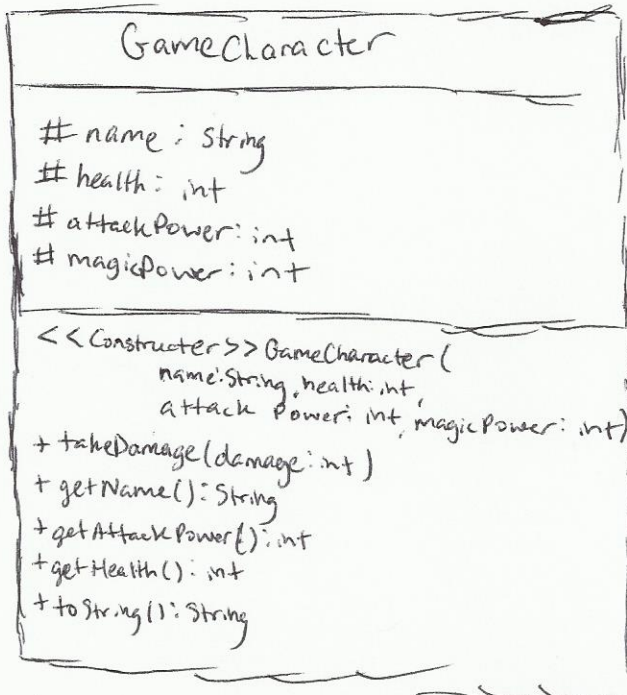 GameCharacter
# name : String
# health : int
# attackPower : int
# magicPower : int
<<Constructer>> GameCharacter(
name:String, health:int,
attack Power: int, magicPower: int)
+ takeDamage(damage:int)
+ getName(): String
+ getAttackPower(): int
+ getHealth(): int
+ toString(): String